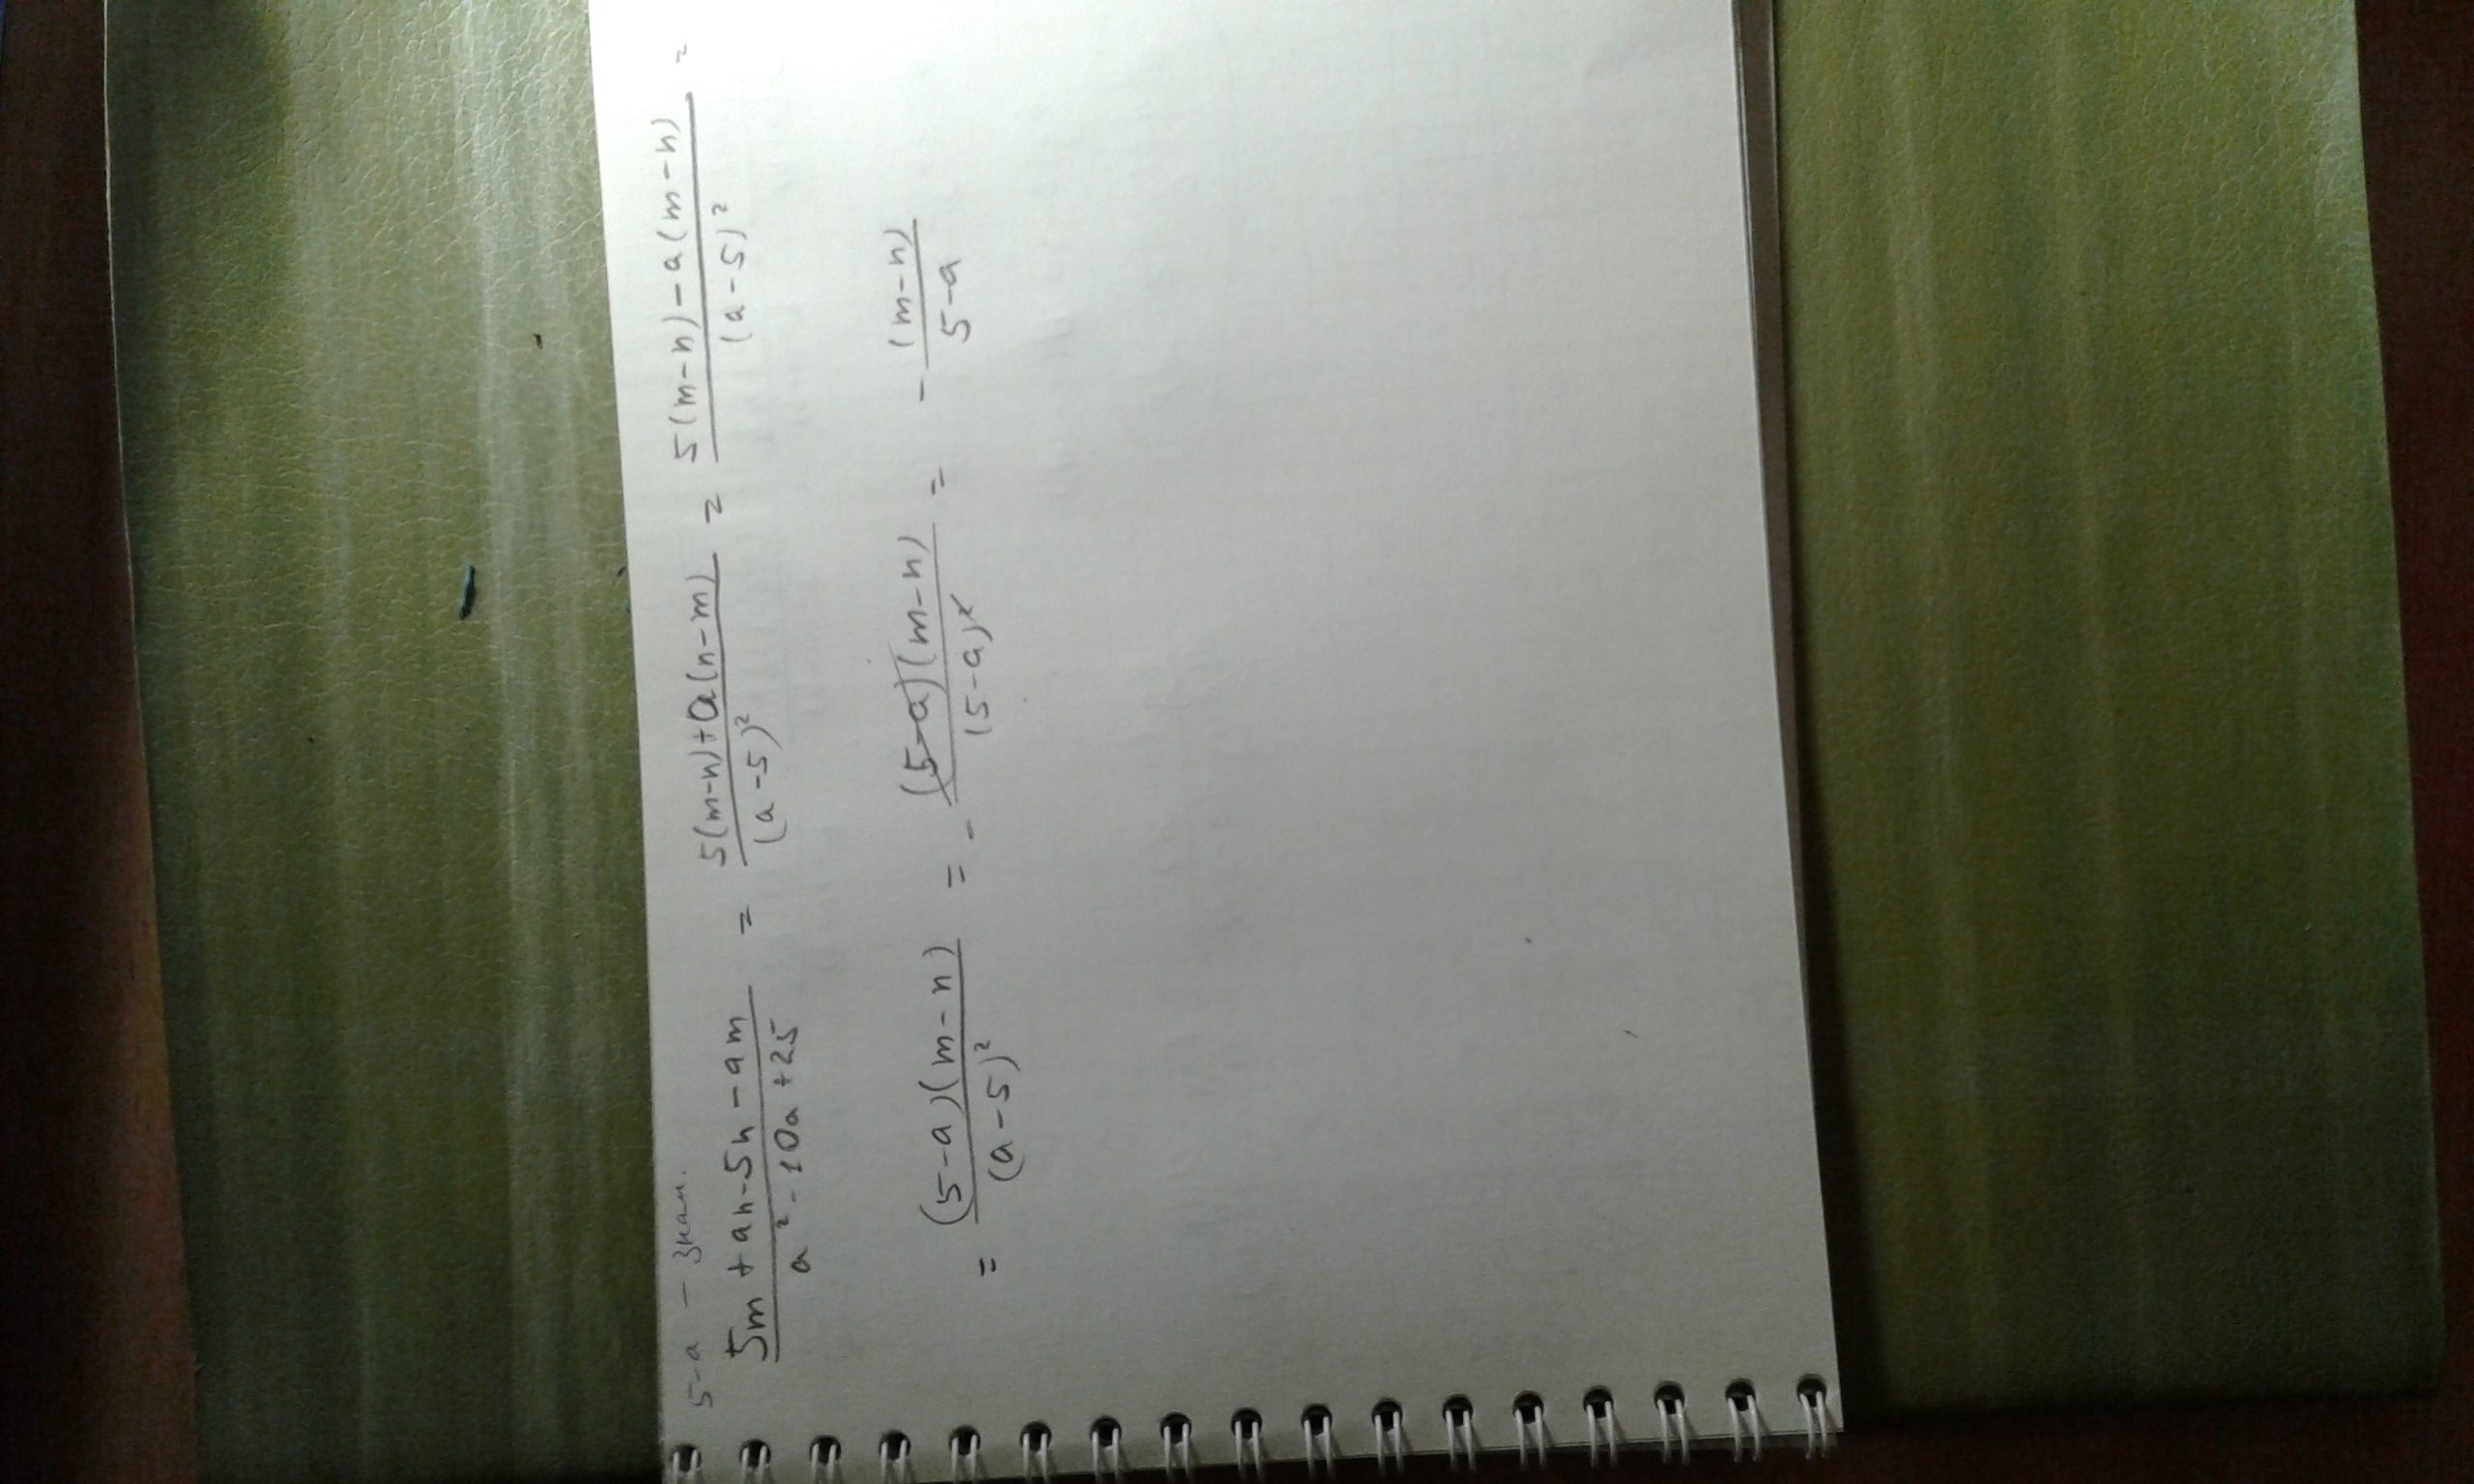 5-a - знам.
(5m + an - 5n - am)/(a² - 10a + 25) = (5(m-n)+a(n-m))/((a-5)²) = (5(m-n)-a(m-n))/((a-5)²) =
= ((5-a)(m-n))/((a-5)²) = - ((5-a)(m-n))/((5-a)²) = - (m-n)/(5-a)